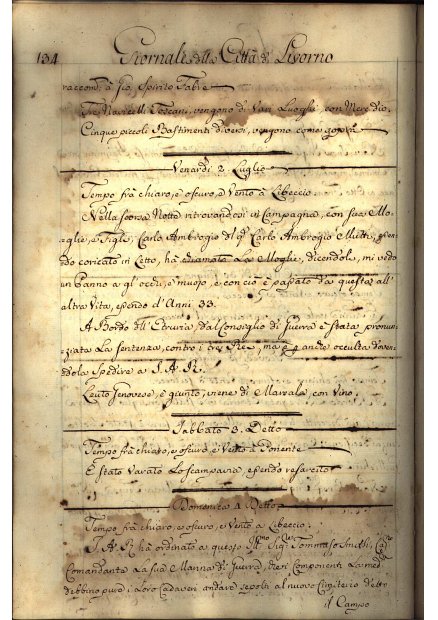 134 Giornale della Città di Livorno
raccom: à Gio, Spirito Fabre
Tre Navicelli Toscani, vengono di Vari Luoghi, con Merc.
Cinque piccoli Bastimenti diversi, vengono come
Venardi 2. Luglio
Tempo frà chiaro, e oscuro, e Vento à Libeccio
Nella scorsa Notte ritrovandosi in Campagna, con sua Mo-
glie, e Figli, Carlo Ambrogio del q. Carlo Ambrogio
do coricato in Letto, hà chiamata La Moglie, dicendoli, mi vedo
un panno a gl'occhi, e muojo, e con ciò è passato da questa all'
altra Vita, essendo d'Anni 33.
A Bordo dell'Etruria, dal Consiglio di Guerra è stata pronun-
ziata La sentenza, contro i tre Rei, mà occulta doven-
dola Spedire a S. A. R.
Leuto Genovese, è giunto, viene di Marsala, con Vino
Sabbato 3. Detto
Tempo frà chiaro, e oscuro, e Vento à Ponente
È stato Varato Lo scampavia, essendo resarcito
Domenica 4 Detto
Tempo frà chiaro, e oscuro, e Vento à Libeccio
S. A. R. hà ordinato a questo Ill.mo Sig.re Tommaso
Comandante La sua Marina di Guerra, che i Componenti La med.
debbino pure i Loro Cadaveri andare sepolti al nuovo Cimiterio
il Campo